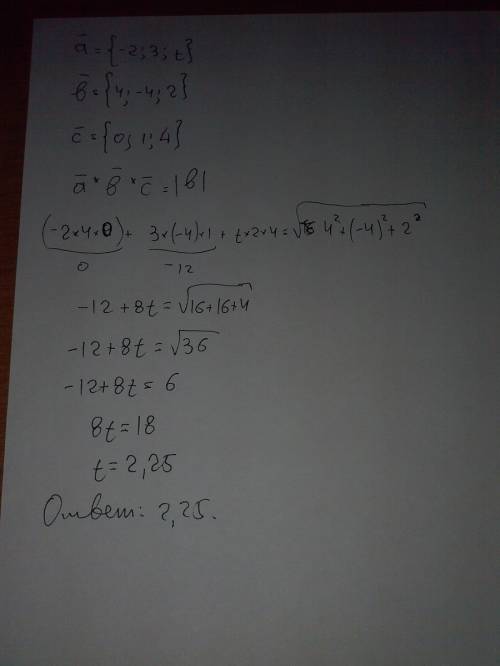 ā = {-2; 3; t}
b̄ = {4; -4; 2}
c̄ = {0; 1; 4}
ā × b̄ × c̄ = |b|
(-2×4×0) + 3×(-4)×1 + t×2×4 = √4²+(-4)²+2²
0 -12
-12 + 8t = √16+16+4
-12 + 8t = √36
-12 + 8t = 6
8t = 18
t = 2,25
Ответ: 2,25.